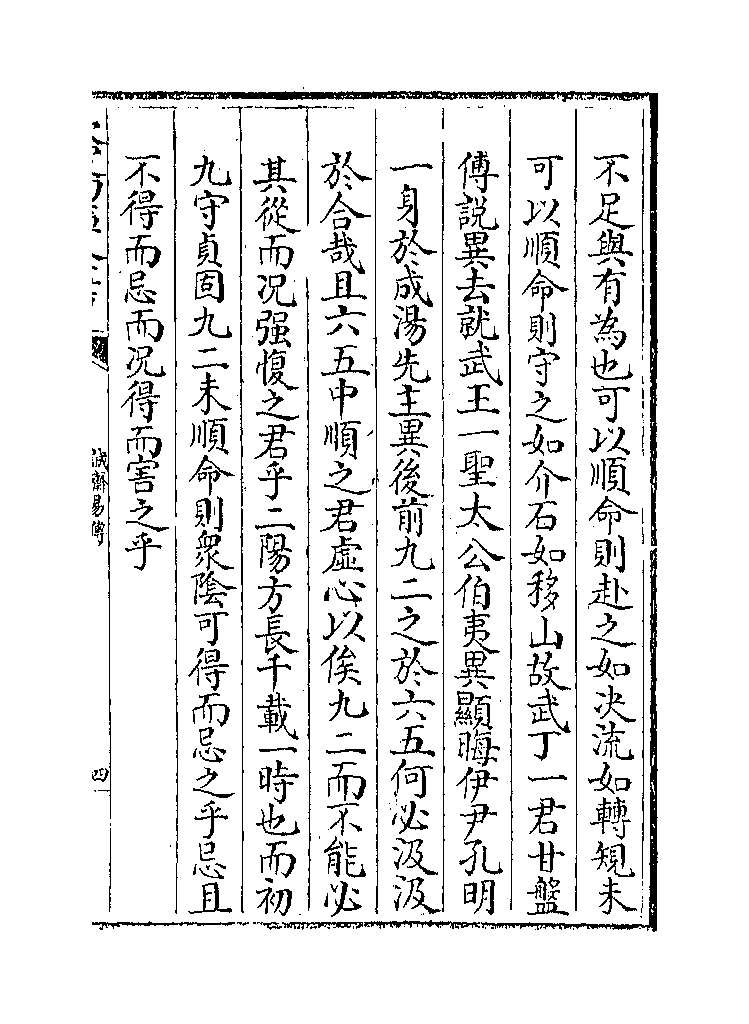 不足與有為也可以順命則赴之如决流如轉規未
可以順命則守之如介石如移山故武丁一君甘盤
傅說異去就武王一聖太公伯夷異顯晦伊尹孔明
一身於成湯先主異後前九二之於六五何必汲汲
於合哉且六五中順之君虛心以俟九二而不能必
其從而况强愎之君乎二陽方長千載一時也而初
九守貞固九二未順命則衆陰可得而忌之乎忌且
不得而忌而况得而害之乎
誠齋易傳
四